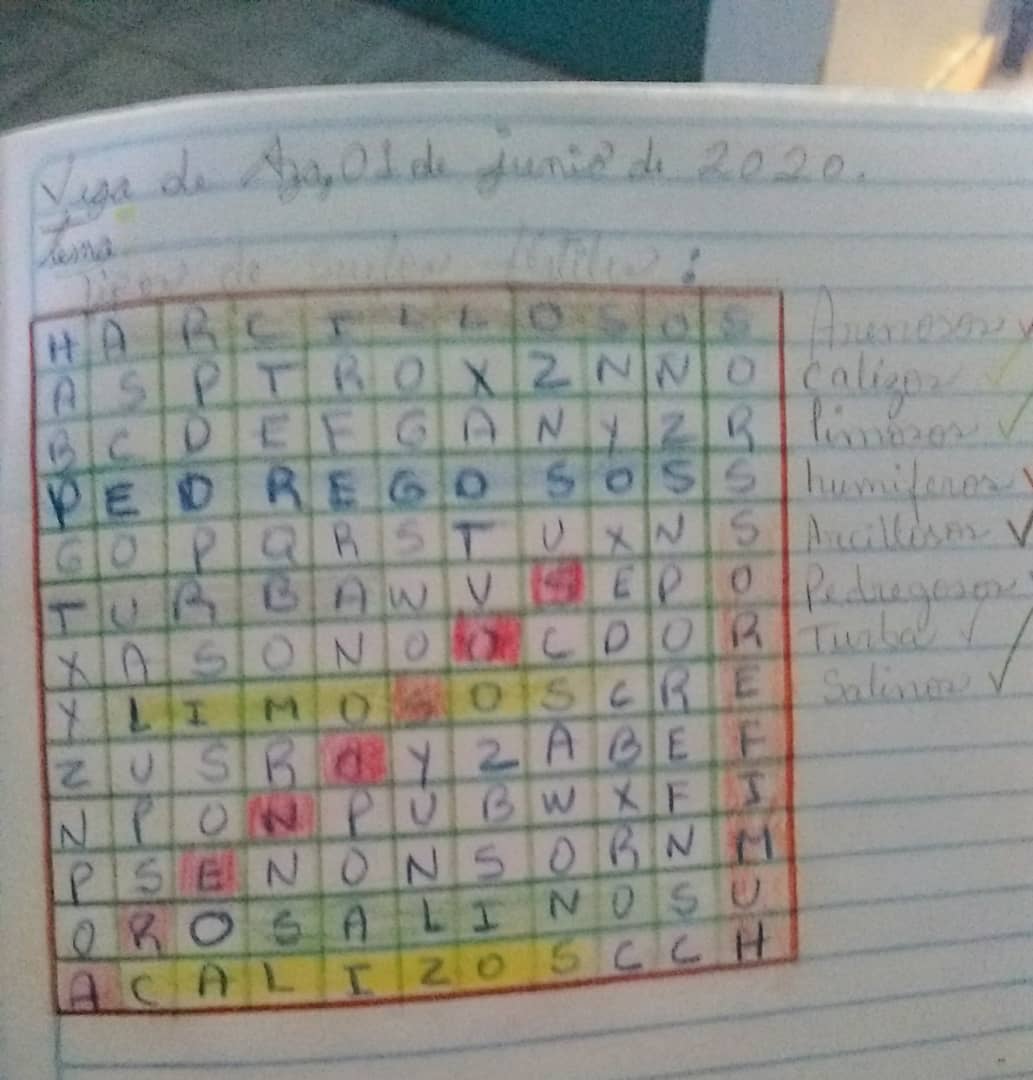 Vega de Aza, 01 de junio de 2020.
Tema
Tipos de suelos fértiles :
H A R C I L L O S O S
A S P T R O X Z N N O
B C D E F G A N Y Z R
P E D R E G O S O S S
G O P Q R S T U X N S
T U R B A W V S E P O
X A S O N O O C D O R
Y L I M O S O S C R E
Z U S R O Y Z A B E F
N P O N P U B W X F I
P S E N O N S O R N M
O R O S A L I N O S U
A C A L I Z O S C C H
Arenosos
Calizos
limosos
humiferos
Arcillosos
Pedregosos
Turba
Salinos